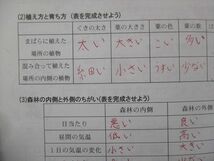 (2)植え方と育ち方（表を完成させよう）
くきの太さ 葉の大きさ 葉の色 葉の数
まばらに植えた場所の植物 太い 大きい こい 多い
混み合って植えた場所の内側の植物 細い 小さい うすい 少ない
(3)森林の内側と外側のちがい（表を完成させよう）
森林の内側 森林の外側
日当たり 悪い 良い
昼間の気温 低い 高い
1日の気温の変化 小さい 大きい